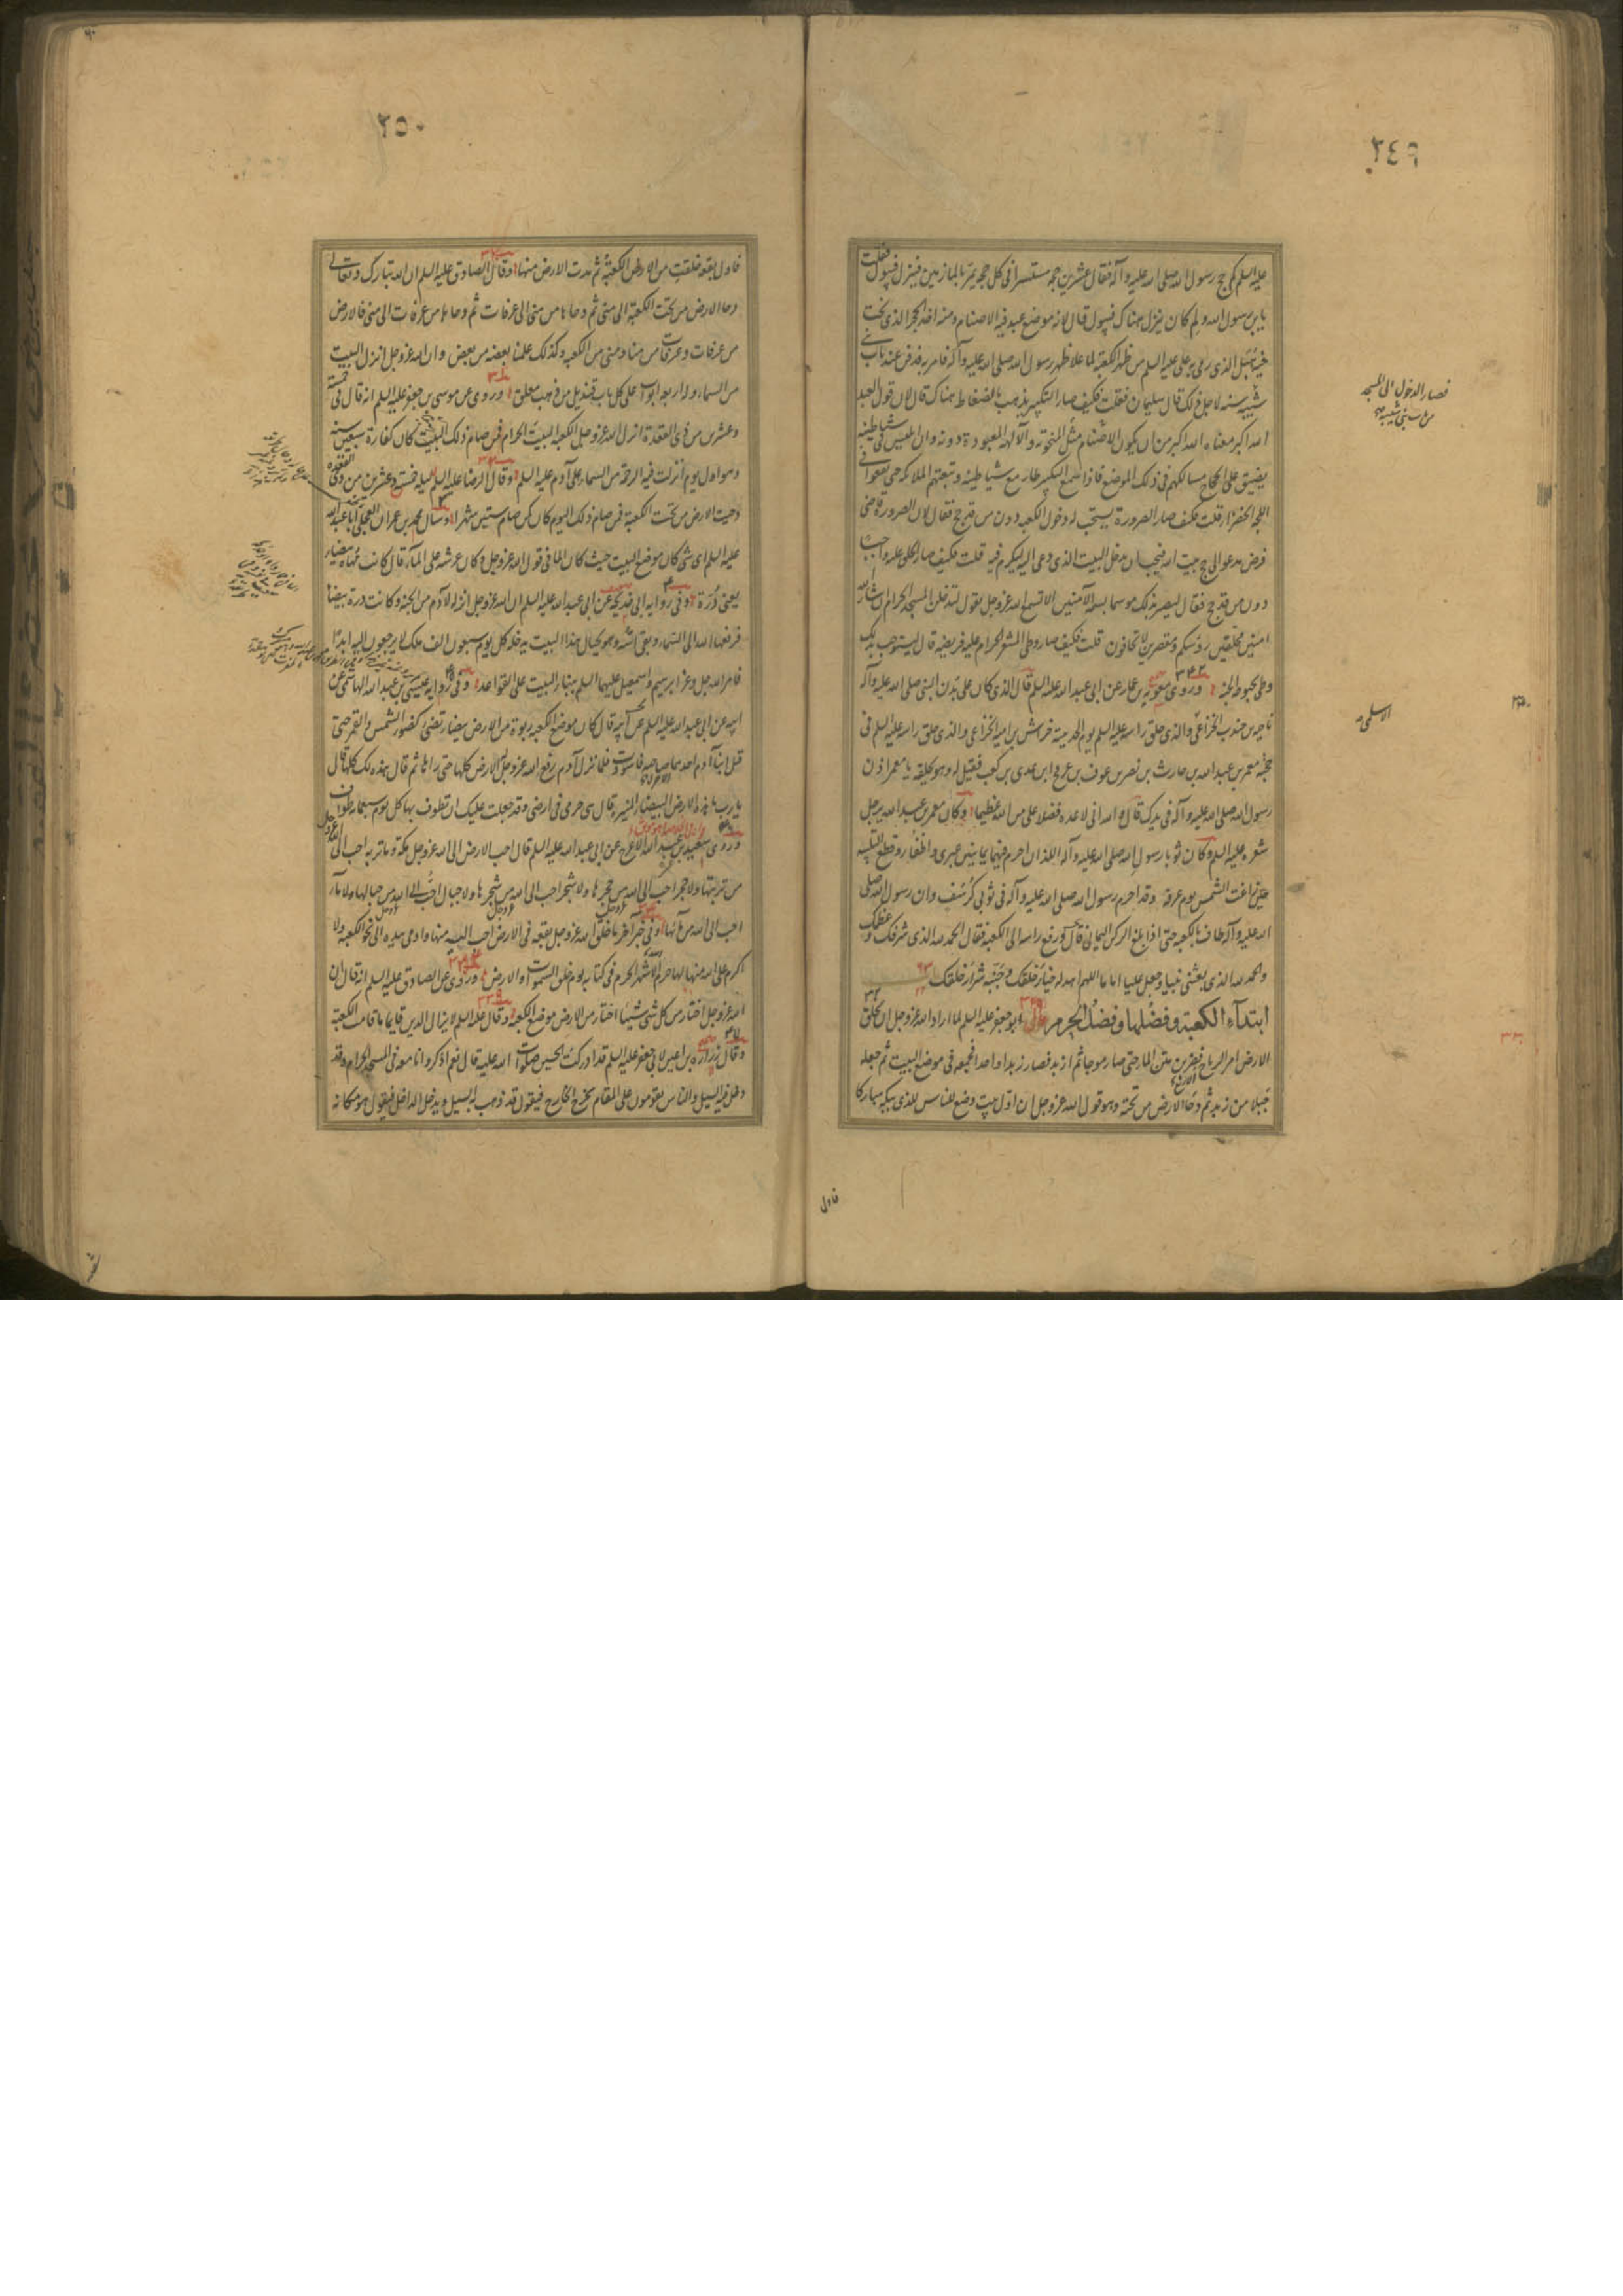 ٢٤٩
عليه السلم كم حج رسول الله صلى الله عليه وآله فقال عشرين حجة مستسرا في كل حجة يمر بالمازمين فينزل فيبول فقلت
يا بن رسول الله ولم كان ينزل هناك فيبول قال لانه موضع عبد فيه الاصنام ومنه اخذ الحجر الذي نحت
منه هبل الذي رمى به علي عليه السلم من ظهر الكعبة لما علا ظهر رسول الله صلى الله عليه وآله فامر به فدفن عند باب بني
شيبه سنه لاجل ذلك قال سليمان فقلت فكيف صار التكبير يذهب بالضغاط هناك قال لان قول العبد
الله اكبر معناه الله اكبر من ان يكون الاصنام مثل المنحوتة والآلهة المعبودة دونه وان ابليس في شياطينه
يضيق على الحاج مسالكهم في ذلك الموضع فاذا سمع التكبير طار مع شياطينه وتبعتهم الملائكة حتى يقعوا في
اللجة الخضراء قلت فكيف صار الصرورة يستحب له دخول الكعبة دون من قد حج فقال لان الصرورة قاضي
فرض مدعو الى حج بيت الله فيجب ان يدخل البيت الذي دعي اليه ليكرم فيه قلت فكيف صار الحلق عليه واجبا
دون من قد حج فقال ليصير بذلك موسما بسمة الآمنين الا تسمع الله عز وجل يقول لتدخلن المسجد الحرام ان شاء الله
امنين محلقين رؤسكم ومقصرين لا تخافون قلت فكيف صار وطي المشعر الحرام عليه فريضه قال ليستوجب بذلك
وطي بحبوحة الجنة وروى معوية بن عمار عن ابي عبد الله عليه السلم قال الذي كان على بدن النبي صلى الله عليه وآله
ناجية بن جندب الخزاعي والذي حلق راسه عليه السلم يوم الحديبية خراش بن امية الخزاعي والذي حلق راسه عليه السلم في
حجته معمر بن عبد الله بن حارث بن نصر بن عوف بن عويج ابن عدي بن كعب فقيل له وهو يحلقه يا معمر اذن
رسول الله صلى الله عليه وآله في يدك قال والله اني لاعده فضلا علي من الله عظيما وكان معمر بن عبد الله يرجل
شعره عليه السلم وكان ثوبا رسول الله صلى الله عليه وآله اللذان احرم فيهما يمانيين عبري واظفار وقطع التلبيه
حين زاغت الشمس يوم عرفة وقد احرم رسول الله صلى الله عليه وآله في ثوبي كرسف وان رسول الله صلى
الله عليه وآله طاف بالكعبه حتى اذا بلغ الركن اليماني قال ورفع راسه الى الكعبة فقال الحمد لله الذي شرفك وعظمك
والحمد لله الذي بعثني نبيا وجعل عليا اماما اللهم اهد له خيار خلقك وجنبه شرار خلقك
ابتدآء الكعبة وفضلها وفضل الحرم قال ابو جعفر عليه السلم لما اراد الله عز وجل ان يخلق
الارض امر الرياح فضربن متن الماء حتى صار موجا ثم ازبد فصار زبدا واحدا فجمعه في موضع البيت ثم جعله
جبلا من زبد ثم دحا الارض من تحته وهو قول الله عز وجل ان اول بيت وضع للناس للذي ببكة مباركا
فاول
فصار الدخول الى المسجد
من باب بني شيبه
الاسلمي
٢٥٠
فاول بقعة خلقت من الارض الكعبة ثم مدت الارض منها وقال الصادق عليه السلم ان الله تبارك وتعالى
دحا الارض من تحت الكعبة الى منى ثم دحاها من منى الى عرفات ثم دحاها من عرفات الى منى فالارض
من عرفات وعرفات من منا ومنى من الكعبه وكذلك علمنا بعضه من بعض وان الله عز وجل انزل البيت
من السماء وله اربعه ابواب على كل باب قنديل من ذهب معلق وروى عن موسى بن جعفر عليه السلم انه قال في خمسة
وعشرين من ذي القعدة انزل الله عز وجل الكعبه البيت الحرام فمن صام ذلك اليوم كان كفارة سبعين سنه
وهو اول يوم انزلت فيه الرحمة من السماء على آدم عليه السلم وقال الرضا عليه السلم ليله خمسة وعشرين من ذي القعدة
دحيت الارض من تحت الكعبة فمن صام ذلك اليوم كان كمن صام ستين شهرا وسال محمد بن عمران العجلي ابا عبد الله
عليه السلم اي شي كان موضع البيت حيث كان الماء في قول الله عز وجل وكان عرشه على الماء قال كانت مهاة بيضاء
يعني درة وفي رواية ابي خديجه عن ابي عبد الله عليه السلم ان الله عز وجل انزله لآدم من الجنة وكانت درة بيضا
فرفعها الله الى السماء وبقي اسه وهو بحيال هذا البيت يدخله كل يوم سبعون الف ملك لا يرجعون اليه ابدا
فامر الله جل وعز ابرهيم واسمعيل عليهما السلم ببناء البيت على القواعد وفي رواية عيسى بن عبد الله الهاشمي عن
ابيه عن ابي عبد الله عليه السلم عن آبائه قال كان موضع الكعبه ربوة من الارض بيضاء تضئ كضوء الشمس والقمر حتى
قتل ابنا آدم احدهما صاحبه فاسودت فلما نزل آدم رفع الله عز وجل له الارض كلها حتى راها ثم قال هذه لك كلها قال
يا رب ما هذه الارض البيضاء المنيرة قال هي حرمي في ارضي وقد جعلت عليك ان تطوف بها كل يوم سبعماءه طواف
وروى سعيد بن عبد الله الاعرج عن ابي عبد الله عليه السلم قال احب الارض الى الله عز وجل مكة وما تربه احب الى الله عز وجل
من تربتها ولا حجر احب الى الله من حجرها ولا شجر احب الى الله من شجرها ولا جبال احب الى الله من جبالها ولا ماء
احب الى الله من مآئها وفي خبر آخر ما خلق الله عز وجل بقعة في الارض احب اليه منها واومى بيده الى نحو الكعبة ولا
اكرم على الله منها لها حرم الله الاشهر الحرم في كتابه يوم خلق السموات والارض وروى عن الصادق عليه السلم انه قال ان
الله عز وجل اختار من كل شي شيئا اختار من الارض موضع الكعبة وقال عليه السلم لا يزال الدين قايما ما قامت الكعبة
وقال زرارة بن اعين لابي جعفر عليه السلم قد ادركت الحسين صلوات الله عليه قال نعم اذكر وانا معه في المسجد الحرام وقد
دخل فيه السيل والناس يقومون على المقام يخرج الخارج فيقول قد ذهب به السيل ويدخل الداخل فيقول هو مكانه